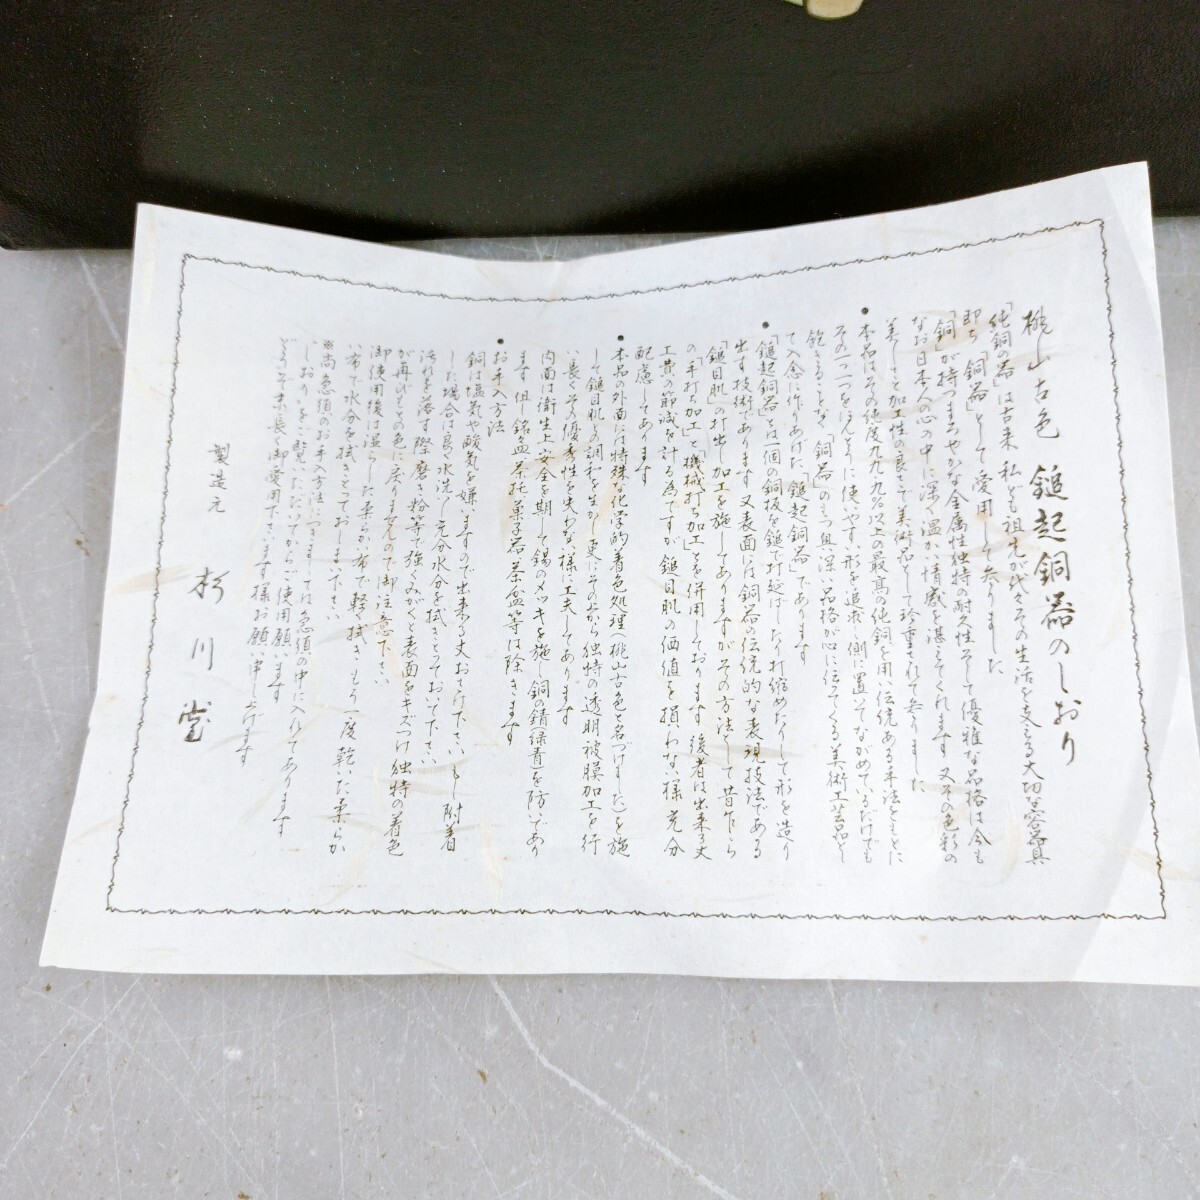 桃山古色 鎚起銅器のしおり
「純銅の器」は古来 私ども祖先が代々その生活を支える大切な容器具
即ち「銅器」として愛用して参りました
「銅」が持つまろやかな金属性独特の耐久性そして優雅な品格は今も
なお日本人の心の中に深く温かい情感を湛えてくれます 又その色彩の
美しさと加工性の良さで美術品として珍重されて参りました
●本品はその純度九九・九%以上の最高純銅を用い伝統ある手法をもとに
その一つ一つをほんとうに使いやすい形を追求し側に置いてながめているだけでも
飽きることなく「銅器」のもつ奥深い品格が心に伝ってくる美術工芸品とし
て入念に作りあげた「鎚起銅器」であります
●「鎚起銅器」とは一個の銅板を鎚で打延ばしたり打縮めたりして形を造り
出す技術であります 又表面には銅器の伝統的な表現技法である
「鎚目肌」の打出し加工を施してありますがその方法として昔乍ら
の「手打ち加工」と「機械打ち加工」とを併用しております 後者は出来る丈
工費の節減を計る為ですが鎚目肌の価値を損わない様充分
配慮してあります
●本品の外面には特殊な化学的着色処理(桃山古色と名づけました)を施
して鎚目肌との調和を生かし更にその上から独特の透明被膜加工を行
い長くその優秀性を失わない様に工夫してあります
内面は衛生上安全を期して錫のメッキを施し銅の錆(緑青)を防いであり
ます 但し銘々盆 茶托 菓子器 茶盆等は除きます
●お手入方法
銅は塩気や酸気を嫌いますので出来る丈おさけ下さい もし附着
した場合は良く水洗いし充分水分を拭きとっておいて下さい
汚れを落す際 磨き粉等で強くみがくと表面をキズつけ独特の着色
が再びもとの色に戻りませんので御注意下さい
御使用後は湿らした柔らか布で軽く拭き もう一度 乾いた柔らか
い布で水分を拭きとっておしまい下さい
※尚急須のお手入方法につきましては急須の中に入れてあります
しおりをご一覧いただいてからご使用願います
どうぞ末長く御愛用下さいます様お願い申し上げます
製造元 杉川堂